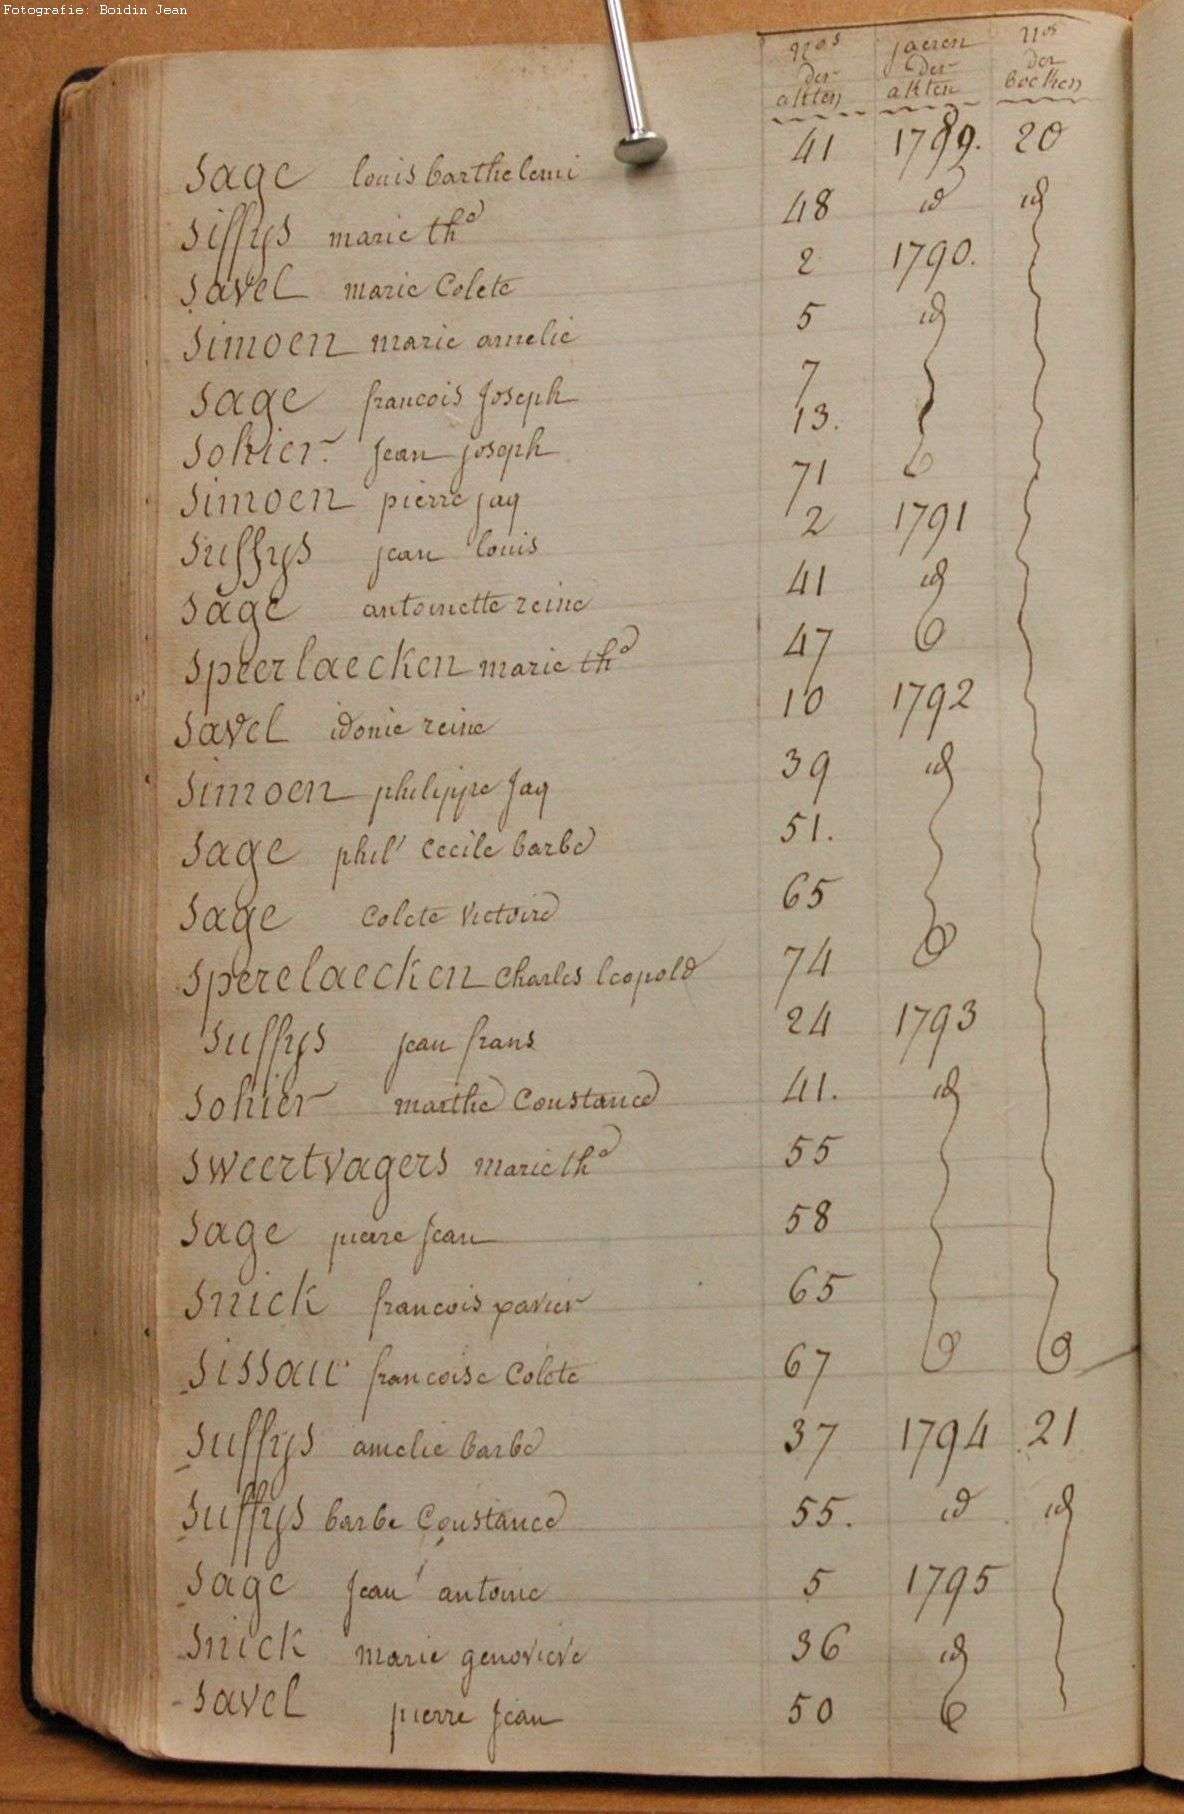 Fotografie: Boidin Jean
nos der akten jaeren der akten nos der boeken
Sage louis barthelemi 41 1789. 20
Siffys marie th^e 48 id id
Savel marie Colete 2 1790.
Simoen marie amelie 5 id
Sage francois Joseph 7
Sohier jean joseph 13.
Simoen pierre jaq 71
Suffys jean louis 2 1791
Sage antoinette reine 41 id
Speerlaecken marie th^e 47
Savel idonie reine 10 1792
Simoen philippe Jaq 39 id
Sage phil' Cecile barbe 51.
Sage Colete victoire 65
Sperelaecken Charles leopold 74
Suffys jean frans 24 1793
Sohier marthe Constance 41. id
Sweertvagers marie th^e 55
Sage pierre Jean 58
Snick francois xavier 65
Sissau francoise Colete 67
Suffys amelie barbe 37 1794 21
Suffys barbe Constance 55. id id
Sage Jean antoine 5 1795
Snick marie genovieve 36 id
Savel pierre Jean 50